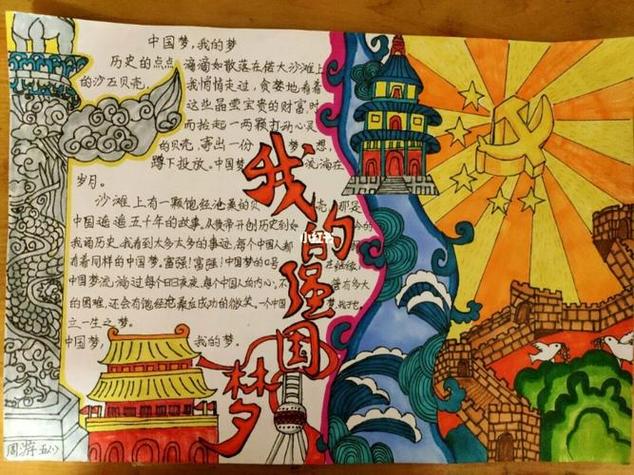 中国梦，我的梦
历史的点点滴滴如散落在偌大沙滩上
的沙石贝壳，我悄悄走过，贪婪地看着
这些晶莹宝贵的财富，时
而捡起一两颗打动心灵
的贝壳，寄出一份梦想，
蹲下投放。中国梦流淌在
岁月。
沙滩上有一颗饱经沧桑的贝壳那是
中国遥遥五十年的故事，从黄帝开创历史到如今的
我涌历史，我看到太多太多的事迹，每个中国人都
有着同样的中国梦。富强！富强！中国梦的口号
中国梦流淌过每个日日夜夜，每个中国人的内心，不管有多大
的困难，还会有饱经沧桑后成功的微笑，一个中国梦，我
立一生之梦。
中国梦，我的梦。
我的强国梦
小红书
周游 五(1)